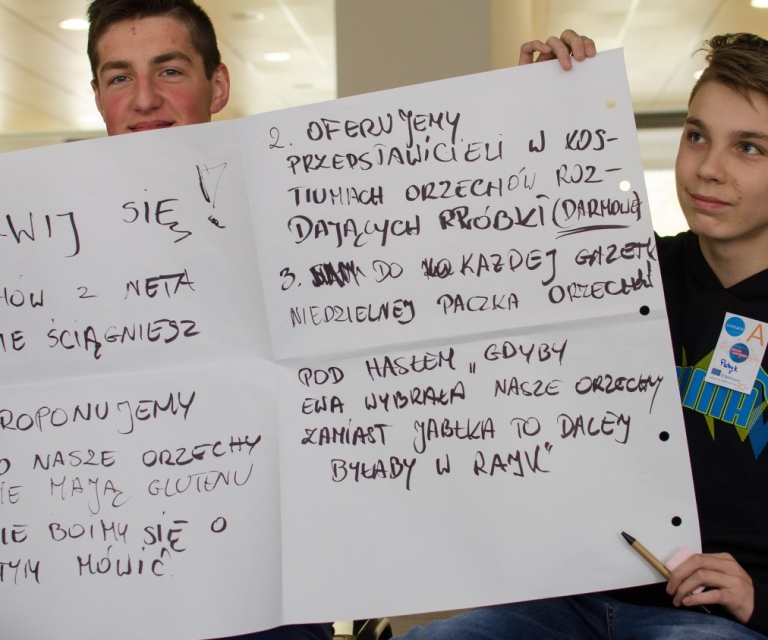 WIJ SIĘ!
HÓW Z NETA
IE ŚCIĄGNIESZ
ROPONUJEMY
O NASZE ORZECHY
IE MAJĄ GLUTENU
IE BOIMY SIĘ O
TYM MÓWIĆ.
2. OFERUJEMY
PRZEDSTAWICIELI W KOS-
TIUMACH ORZECHÓW ROZ-
DAJĄCYCH PRÓBKI (DARMOWE)
3. DO KAŻDEJ GAZETY
NIEDZIELNEJ PACZKA ORZECHÓW
POD HASŁEM „GDYBY
EWA WYBRAŁA NASZE ORZECHY
ZAMIAST JABŁKA TO DALEJ
BYŁABY W RAJU"
A
Patryk